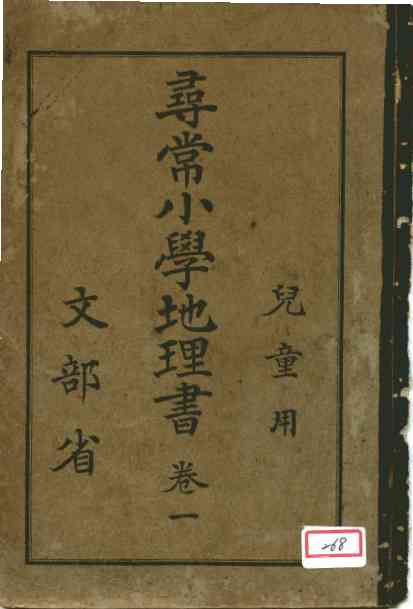 兒童用
尋常小學地理書 卷一
文部省
268